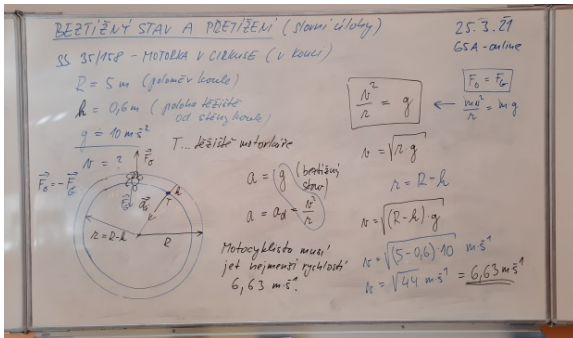 BEZTÍŽNÝ STAV A PŘETÍŽENÍ (slovní úlohy)
25.3.21
G5A - online
SS 35/158 - MOTORKA V CIRKUSE (V KOULI)
R = 5 m (poloměr koule)
h = 0,6 m (poloha těžiště
od stěny koule)
g = 10 m·s⁻²
v = ?
T... těžiště motorkáře
F₀ = -F_G
F₀
F_G
a_d
T
h
r
r = R-h
R
a = g (beztížný
stav)
a = a_d = v²/r
Motocyklista musí
jet nejmenší rychlostí
6,63 m·s⁻¹.
v²/r = g
F₀ = F_G
← mv²/r = mg
v = √(r·g)
r = R-h
v = √((R-h)·g)
v = √((5-0,6)·10) m·s⁻¹
v = √44 m·s⁻¹ = 6,63 m·s⁻¹